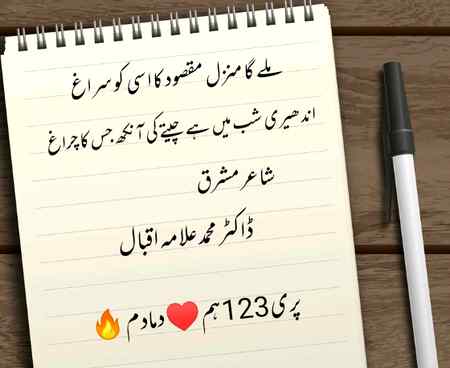 ملے گا منزل مقصود کا اسی کو سراغ
اندھیری شب میں ہے چیتے کی آنکھ جس کا چراغ
شاعر مشرق
ڈاکٹر محمد علامہ اقبال
پری123ہم❤️دمادم🔥